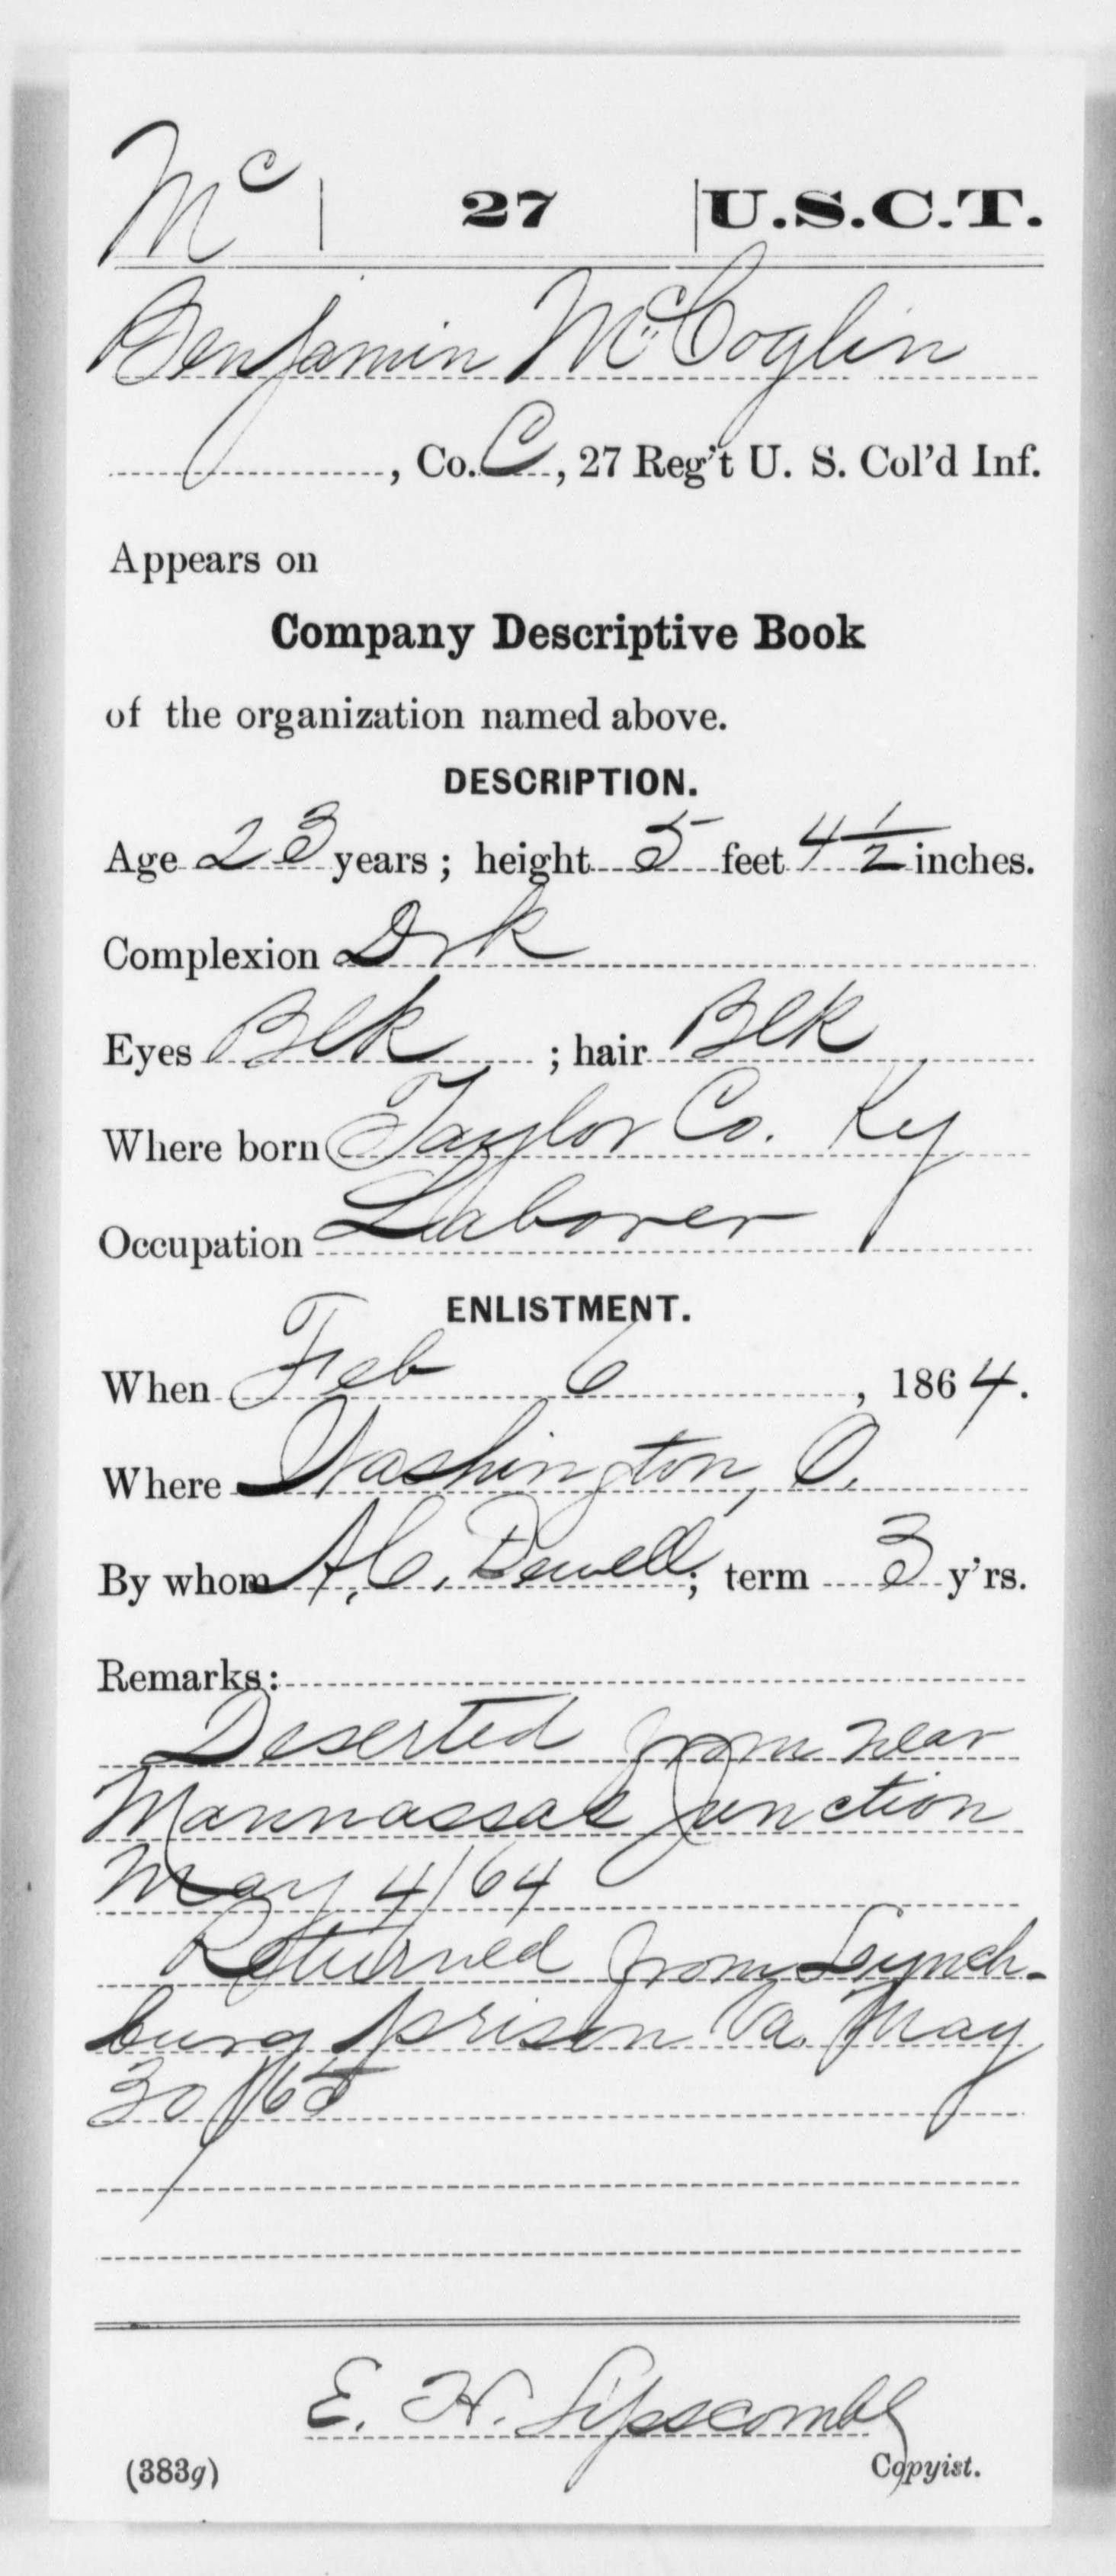 Mc | 27 | U.S.C.T.
Benjamin McCoglin
, Co. C, 27 Reg't U. S. Col'd Inf.
Appears on
Company Descriptive Book
of the organization named above.
DESCRIPTION.
Age 23 years; height 5 feet 4 1/2 inches.
Complexion Drk
Eyes Blk ; hair Blk
Where born Taylor Co. Ky
Occupation Laborer
ENLISTMENT.
When Feb 6, 1864.
Where Washington, O.
By whom A. C. Deuell; term 3 y'rs.
Remarks:
Deserted from near
Mannassas Junction
May 4/64
Returned from Lynch-
burg prison Va. May
30/65
E. H. Lipscomb
(383g) Copyist.